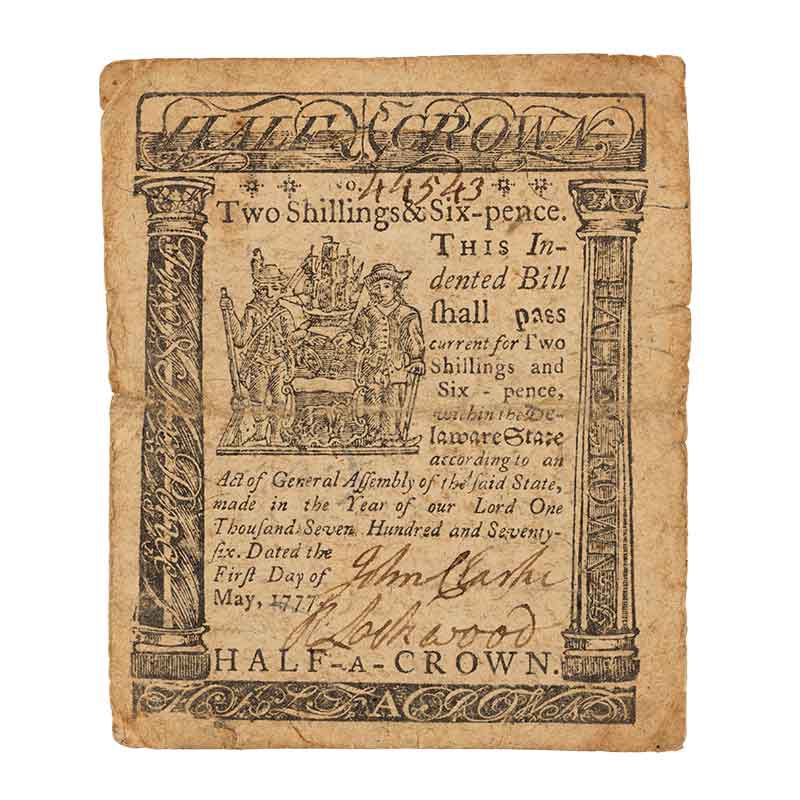 HALF CROWN
No. 44543
Two Shillings & Six-pence.
THIS In-
dented Bill
ſhall paſs
current for Two
Shillings and
Six - pence,
within the De-
laware State
according to an
Act of General Aſſembly of the ſaid State,
made in the Year of our Lord One
Thouſand Seven Hundred and Seventy-
ſix. Dated the
Firſt Day of
May, 1777.
John Clarke
R Lockwood
HALF A CROWN
HALF-A-CROWN.
A CROWN